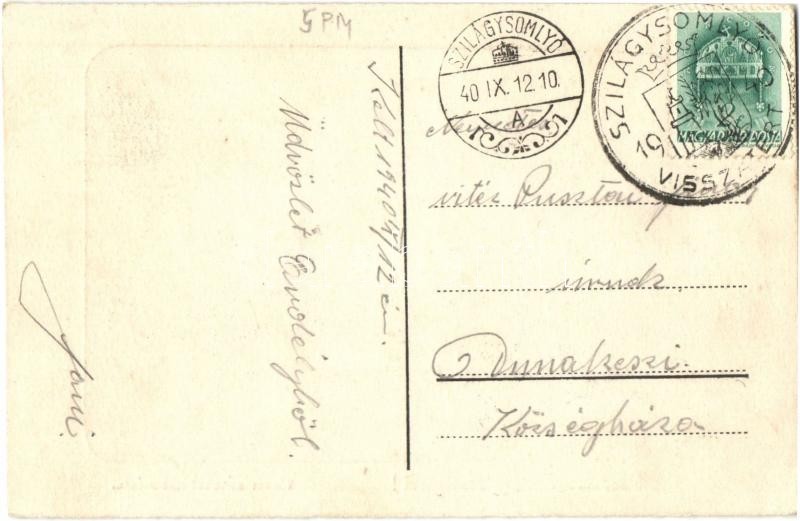 5PM
SZILÁGYSOMLYÓ
40 IX. 12. 10.
A
SZILÁGYSOMLYÓ
VISSZATÉRT
19
MAGYAR POSTA
Kelt 1940
12 én.
Üdvözlet Erdélyből.
Jani.
vitéz Pusztai
úrnak
Dunakeszi.
Községháza